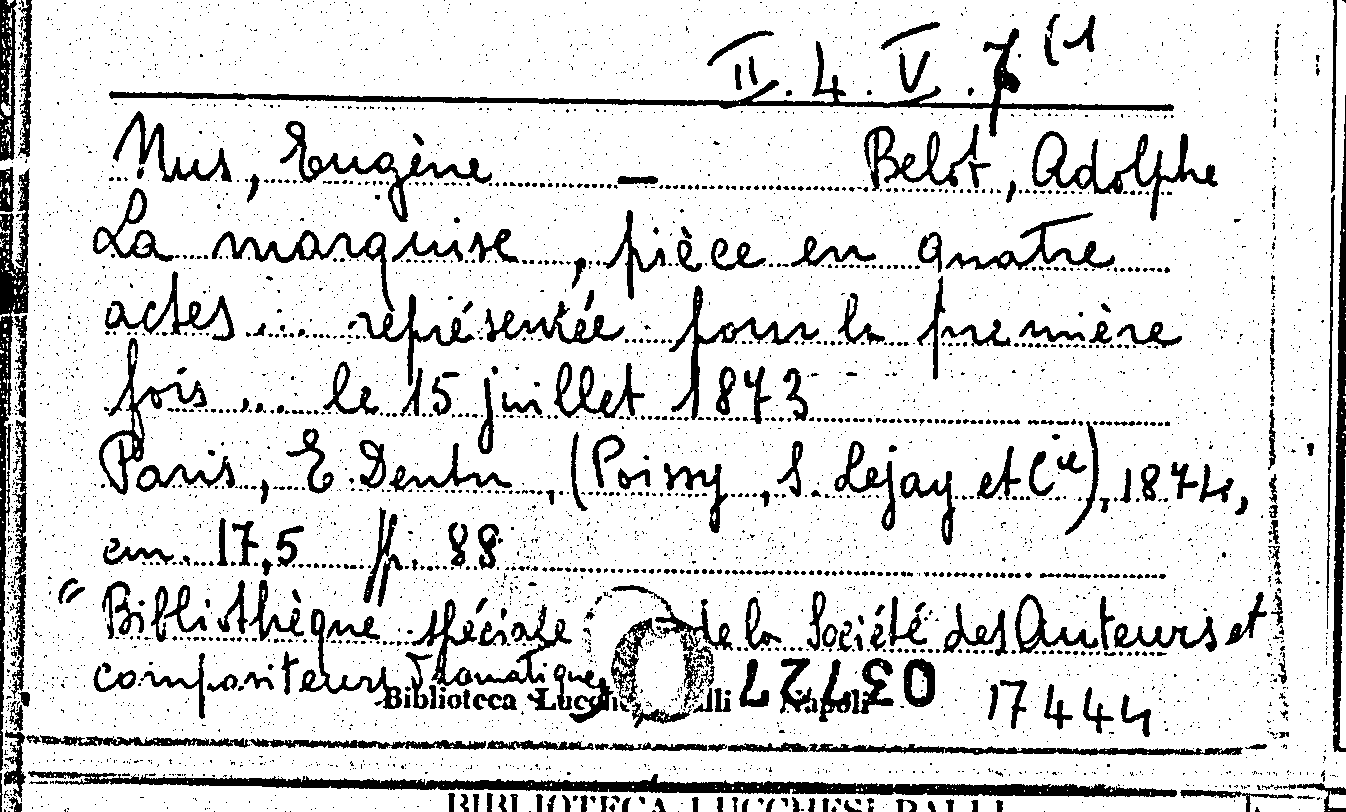 II. 4. V. 7 (1
Nus, Eugène — Belot, Adolphe
La marquise, pièce en quatre
actes ... représentée pour la première
fois ... le 15 juillet 1873
Paris, E. Dentu, (Poissy, S. Lejay et Cie), 1874,
cm. 17,5 p. 88
"Bibliothèque spéciale de la Société des Auteurs et
compositeurs Dramatiques
Biblioteca Lucchesi Palli Napoli 17444
BIBLIOTECA LUCCHESI PALLI